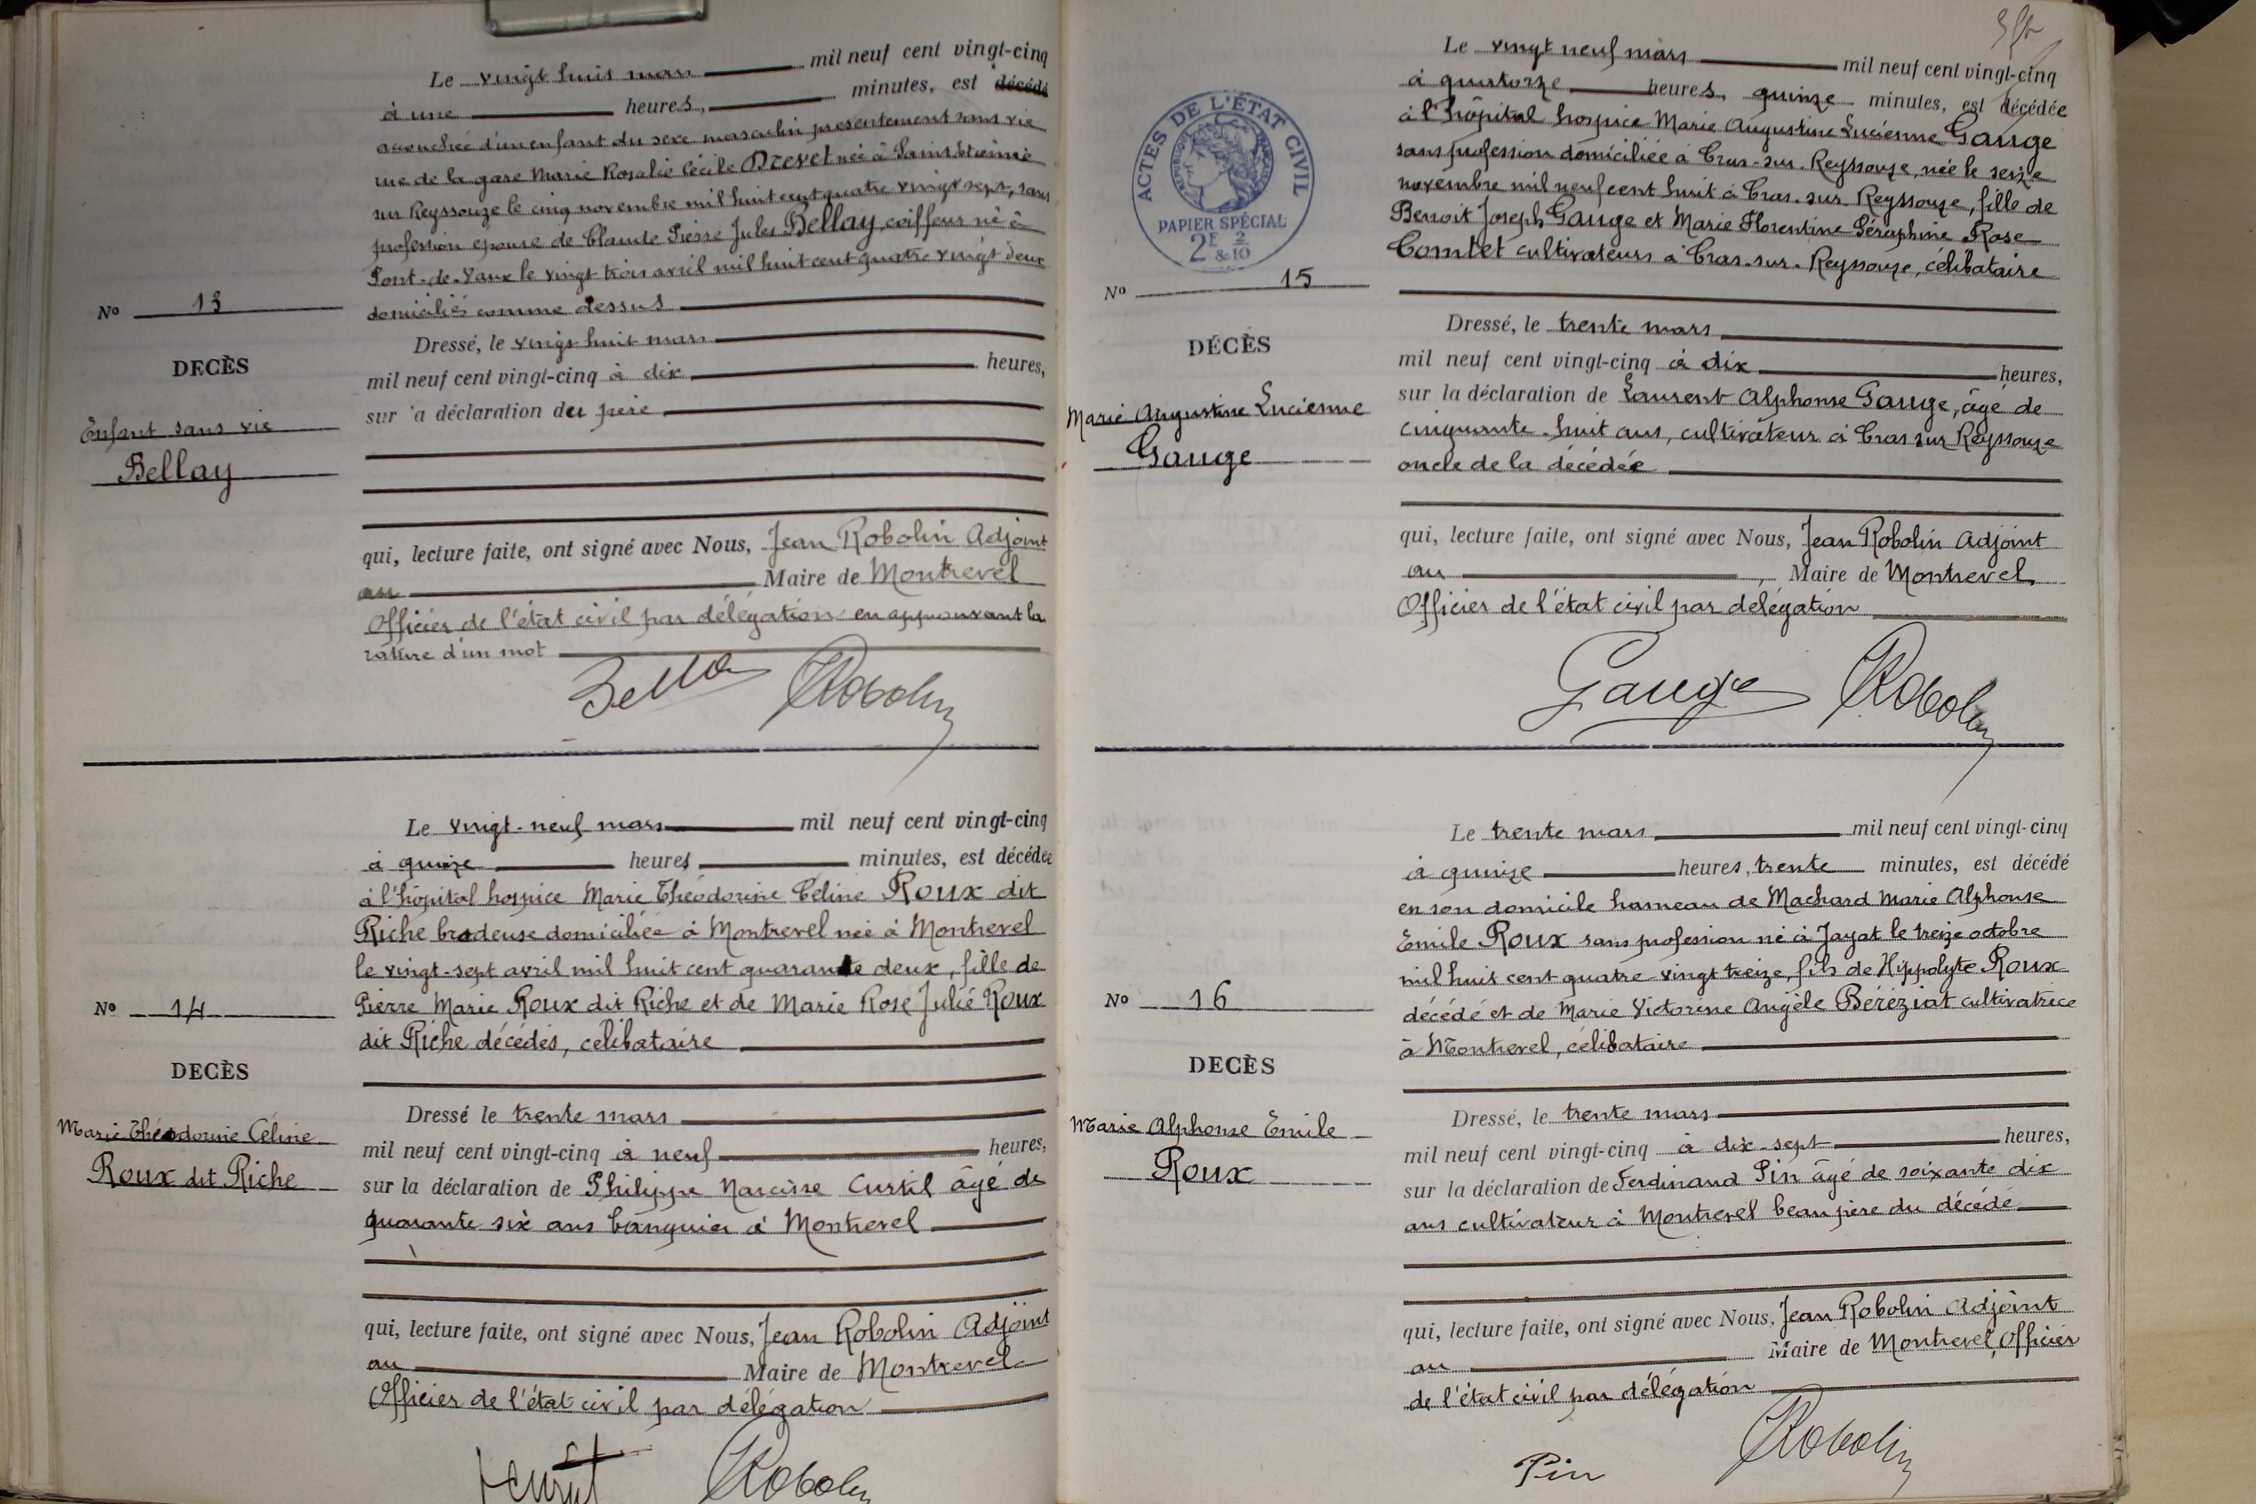 Le vingt huit mars mil neuf cent vingt-cinq
à une heures, minutes, est décédé
accouchée d'un enfant du sexe masculin présentement sans vie
rue de la gare Marie Rosalie Cécile Brevet née à Saint Etienne
sur Reyssouze le cinq novembre mil huit cent quatre vingt sept, sans
profession épouse de Claude Pierre Jules Bellay, coiffeur né à
Pont-de-Vaux le vingt trois avril mil huit cent quatre vingt deux
domiciliés comme dessus
No 13
DECÈS
Enfant sans vie
Bellay
Dressé, le vingt huit mars
mil neuf cent vingt-cinq à dix heures,
sur la déclaration du père
qui, lecture faite, ont signé avec Nous, Jean Robolin Adjoint
au Maire de Montrevel
Officier de l'état civil par délégation en approuvant la
rature d'un mot
Bellay Robolin
Le vingt-neuf mars mil neuf cent vingt-cinq
à quinze heures minutes, est décédée
à l'hôpital hospice Marie Théodorine Céline Roux dit
Riche brodeuse domiciliée à Montrevel née à Montrevel
le vingt-sept avril mil huit cent quarante deux, fille de
Pierre Marie Roux dit Riche et de Marie Rose Julie Roux
dit Riche décédés, célibataire
No 14
DECÈS
Marie Théodorine Céline
Roux dit Riche
Dressé le trente mars
mil neuf cent vingt-cinq à neuf heures,
sur la déclaration de Philippe Narcisse Curtil âgé de
quarante six ans banquier à Montrevel
qui, lecture faite, ont signé avec Nous, Jean Robolin Adjoint
au Maire de Montrevel
Officier de l'état civil par délégation
Robolin
ACTES DE L'ÉTAT CIVIL
PAPIER SPÉCIAL
2E & 2/10
Le vingt neuf mars mil neuf cent vingt-cinq
à quatorze heures, quinze minutes, est décédée
à l'hôpital hospice Marie Augustine Lucienne Gauge
sans profession domiciliée à Cras-sur-Reyssouze, née le seize
novembre mil neuf cent huit à Cras-sur-Reyssouze, fille de
Benoit Joseph Gauge et Marie Florentine Séraphine Rose
Comtet cultivateurs à Cras-sur-Reyssouze, célibataire
No 15
DÉCÈS
Marie Augustine Lucienne
Gauge
Dressé, le trente mars
mil neuf cent vingt-cinq à dix heures,
sur la déclaration de Laurent Alphonse Gauge, âgé de
cinquante-huit ans, cultivateur à Cras sur Reyssouze
oncle de la décédée
qui, lecture faite, ont signé avec Nous, Jean Robolin Adjoint
au Maire de Montrevel
Officier de l'état civil par délégation
Gauge Robolin
Le trente mars mil neuf cent vingt-cinq
à quinze heures, trente minutes, est décédé
en son domicile hameau de Machard Marie Alphonse
Emile Roux sans profession né à Jayat le treize octobre
mil huit cent quatre vingt treize, fils de Hippolyte Roux
décédé et de Marie Victorine Angèle Béréziat cultivatrice
à Montrevel, célibataire
No 16
DECÈS
Marie Alphonse Emile
Roux
Dressé, le trente mars
mil neuf cent vingt-cinq à dix-sept heures,
sur la déclaration de Ferdinand Pin âgé de soixante dix
ans cultivateur à Montrevel beau père du décédé
qui, lecture faite, ont signé avec Nous, Jean Robolin Adjoint
au Maire de Montrevel, Officier
de l'état civil par délégation
Pin Robolin